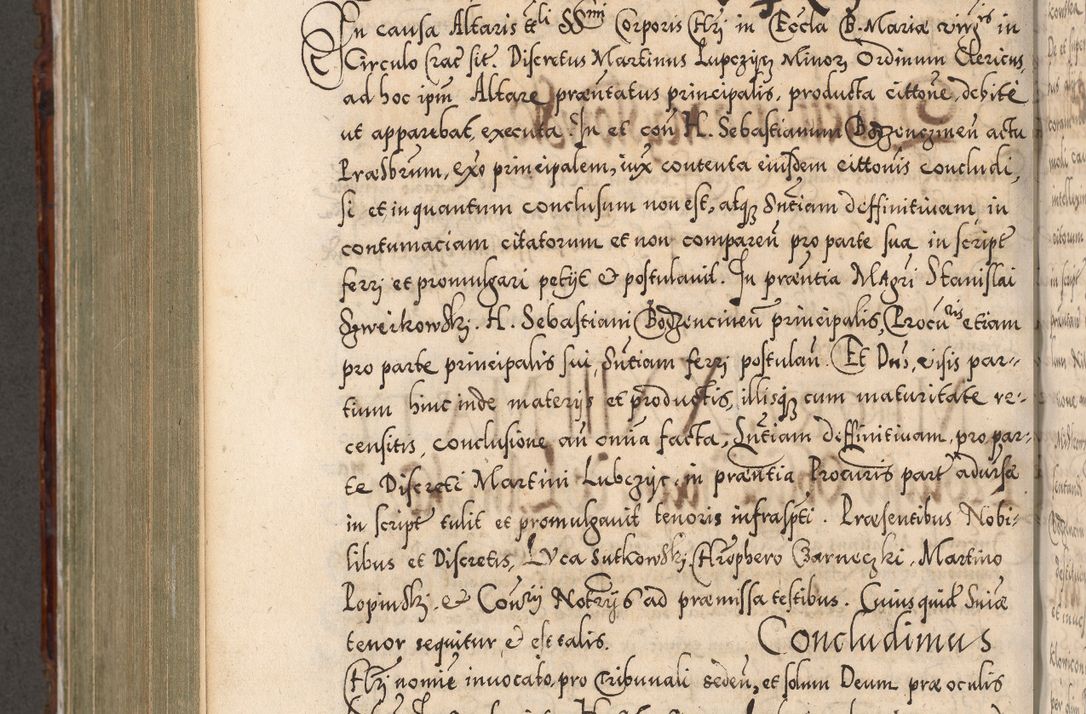 In causa Altaris tt̃li SSmi Corporis Chri in Eccla B. Mariæ virgis in
Circulo Crac̃ sit. Discretus Martinus Lupczijcz Minorũ Ordinum Clericus,
ad hoc ipm̃ Altare præntatus principalis, producta cittone, debite
ut apparebat, executa. In et con̄ H. Sebastianum Bogzenczinen̄ actu
Præsbrum, Exo principalem, iux contenta eiusdem cittonis concludi,
si et in quantum conclusum non est, atq3 Sntiam deffinitiuam in
contumaciam citatorum et non comparen̄ pro parte sua in script̄
ferri et promulgari petijt & postulauit. In præntia Magri Stanislai
Szwirkowski. H. Sebastiani Bogzencinen̄ principalis, Procuris etiam
pro parte principalis sui, Sntiam ferri postulan̄. Et Dns, visis par-
tium hinc inde materijs et productis, illisq3 cum maturitate re-
censitis, conclusione an̄ omnia facta, Sntiam deffinitiuam, pro par-
te Discreti Martini Lubczijc, in præntia Procuris part̄ aduersæ
in script̄ tulit et promulgauit tenoris infraspti. Præsentibus Nobi-
libus et Discretis, Luca Sutkowski, Chrophero Czarneczki, Martino
Popinski, & Coum Notrijs ad præmissa testibus. Cuiusquid Sniæ
tenor sequitur & est talis. Concludimus
Chri nomie inuocato, pro tribunali seden̄, et solum Deum præ oculis